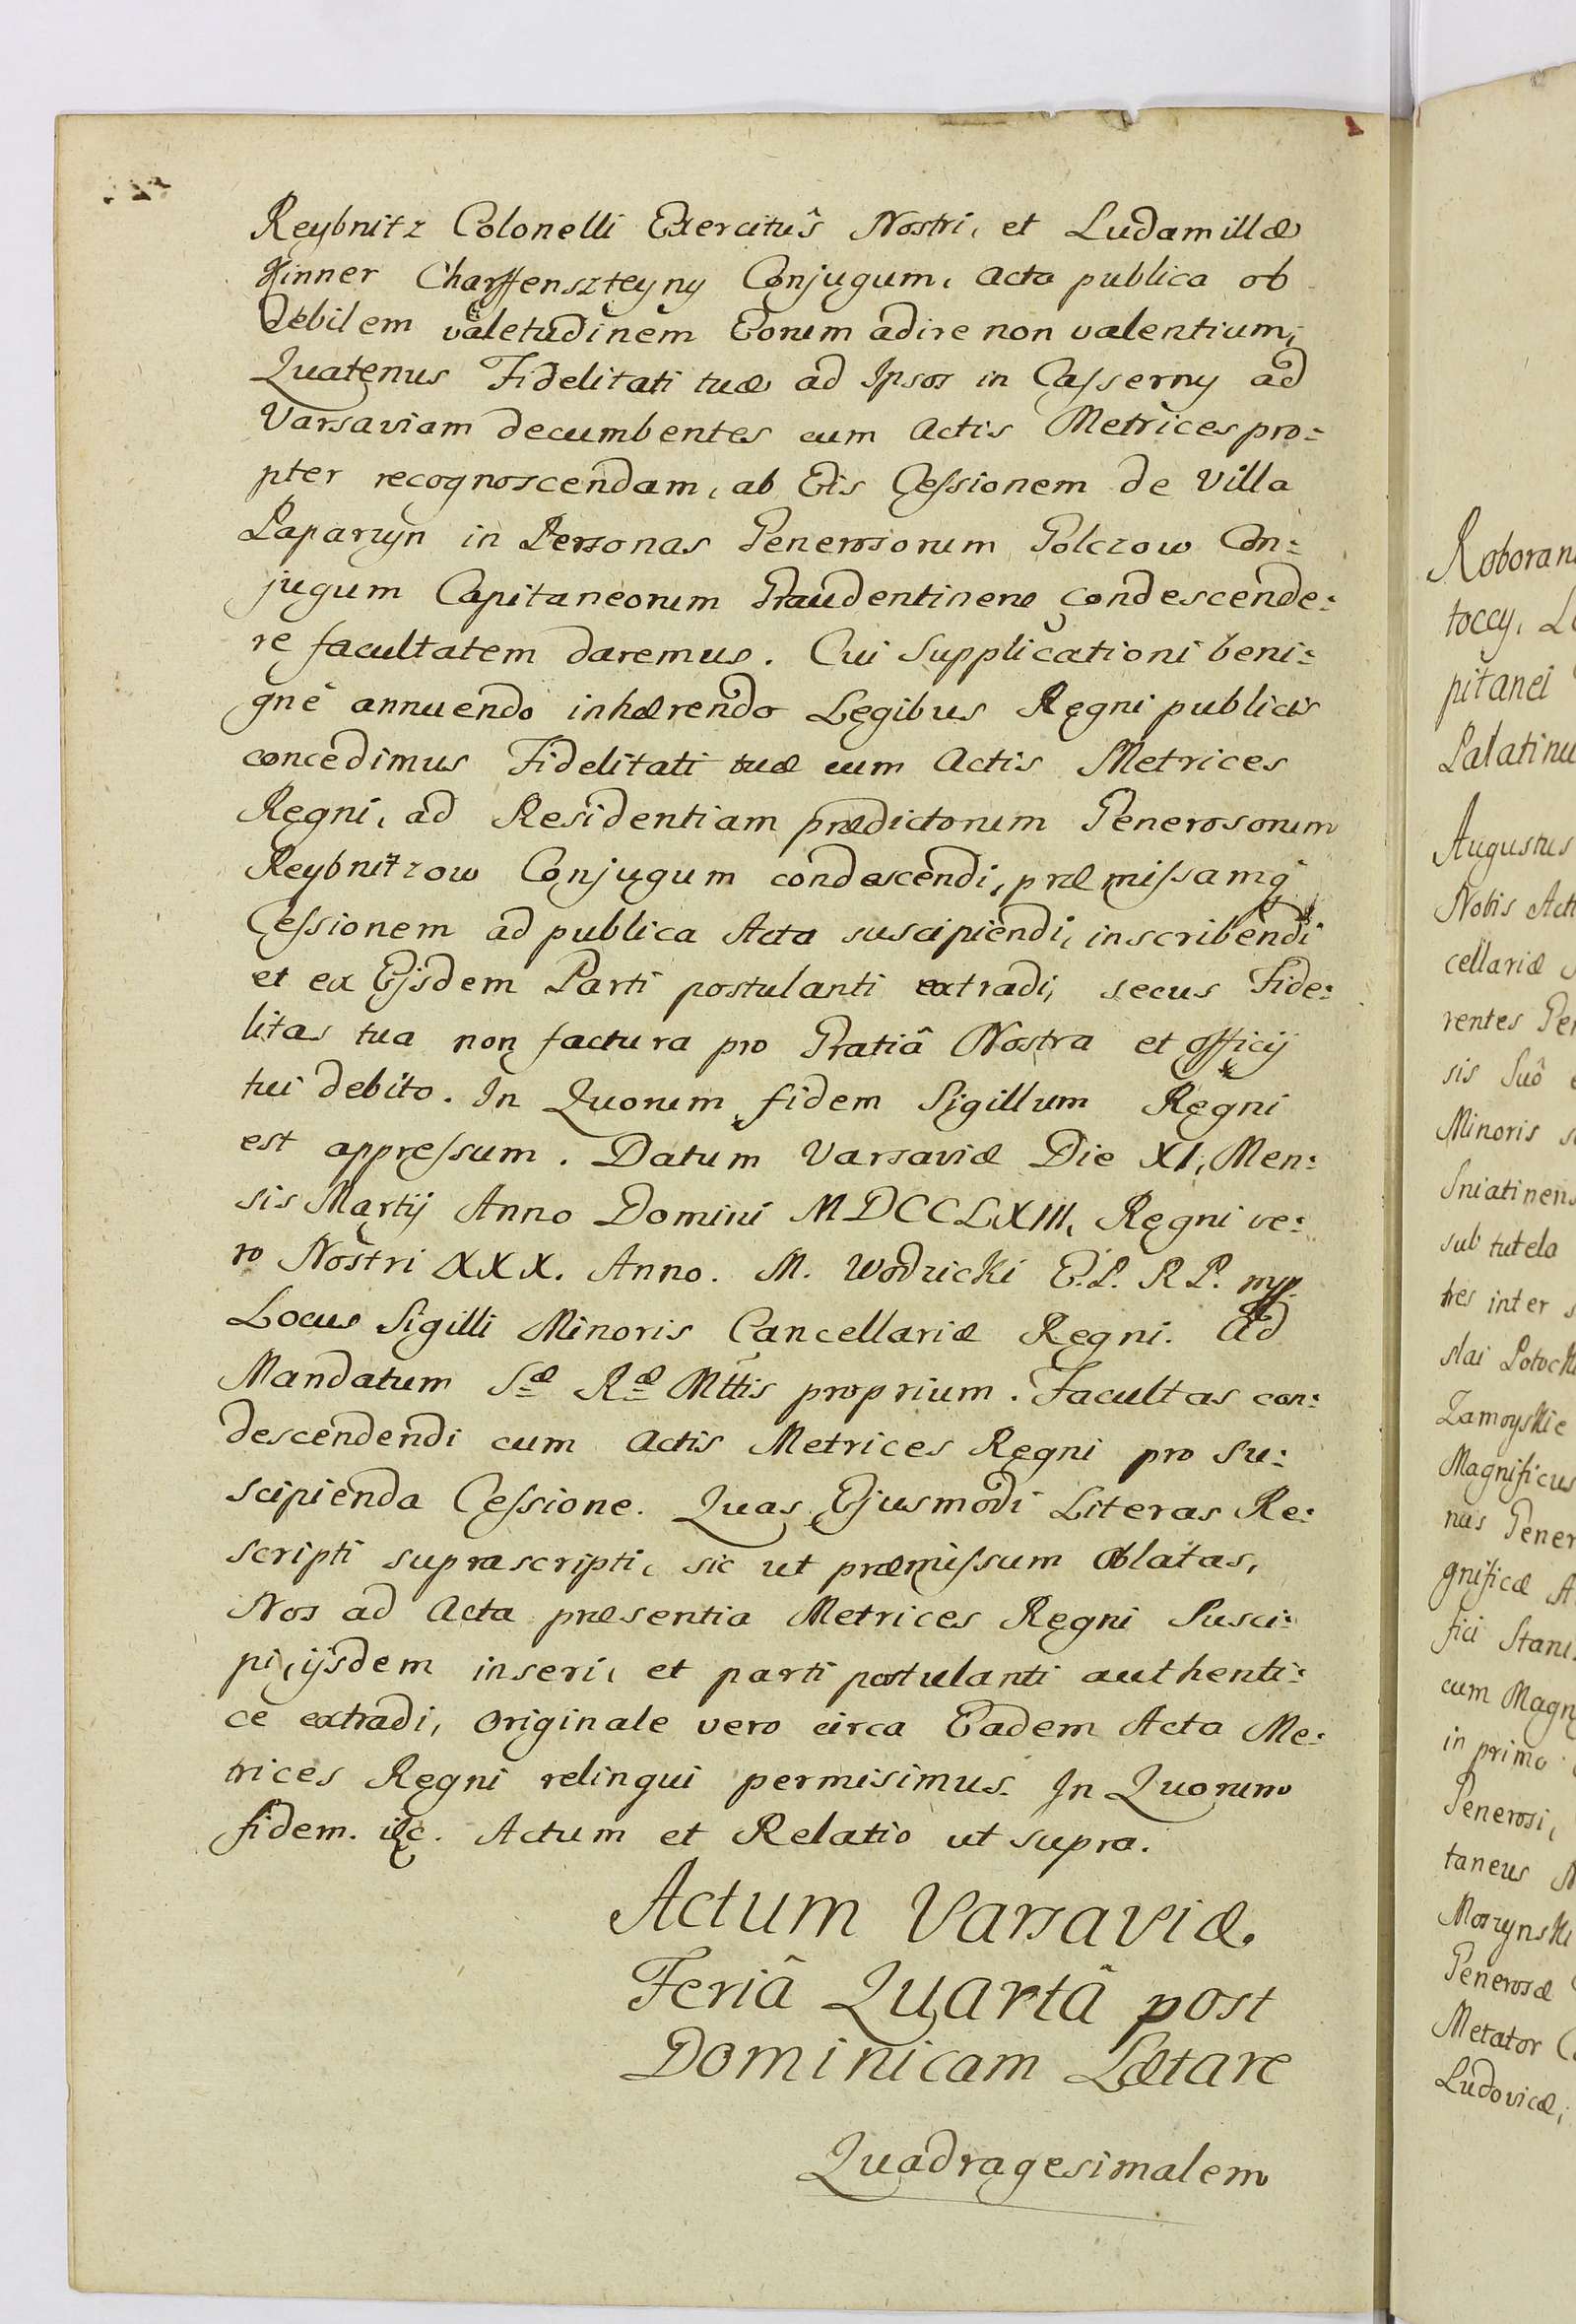 Reybnitz Colonelli Exercitûs Nostri, et Ludamillæ
Hinner Charffenszteyny Conjugum, acta publica ob
debilem valetudinem Eorum adire non valentium,
Quatenus Fidelitati tuæ ad Ipsos in Casserny ad
Varsaviam decumbentes cum actis Metrices pro:
pter recognoscendam, ab Eis Cessionem de Villa
Paparzyn in Personas Generosorum Golczow Con:
jugum Capitaneorum Graudentinen condescende:
re facultatem daremus. Cui Supplicationi beni:
gnè annuendo inhærendo Legibus Regni publicis
concedimus Fidelitati tuæ cum Actis Metrices
Regni, ad Residentiam prædictorum Generosorum
Reybnitzow Conjugum condescendi, præmissamq
Cessionem ad publica Acta suscipiendi, inscribendi
et ex Eijsdem Parti postulanti extradi, secus Fide:
litas tua non factura pro Gratiâ Nostra et officij
tui debito. In Quorum fidem Sigillum Regni
est appressum. Datum Varsaviæ Die XI, Men:
sis Martij Anno Domini MDCCLXIII, Regni ve:
ro Nostri XXX. Anno. M. Wodzicki E.P. R P. mp.
Locus Sigilli Minoris Cancellariæ Regni. Ad
Mandatum Sæ Ræ Mttis proprium. Facultas con:
descendendi cum actis Metrices Regni pro Su:
scipienda Cessione. Quas Ejusmodi Literas Re:
scripti suprascripti, sic ut præmissum Oblatas,
Nos ad Acta præsentia Metrices Regni Susci:
pi, ijsdem inseri, et parti postulanti authenti:
ce extradi, Originale vero circa Eadem Acta Me:
trices Regni relinqui permisimus. In Quorum
fidem. etc. Actum et Relatio ut supra.
Actum Varsaviæ
Feriâ Quartâ post
Dominicam Lætare
Quadragesimalem
Roboran
toccy, L
pitanei
Palatinu
Augustus
Nobis Act
cellariæ
rentes Ge
sis Suô
Minoris
Sniatinens
sub tutela
tres inter s
slai Potock
Zamoyskie
Magnificus
nus Gener
gnificæ A
fici Stani
cum Magn
in primo
Generosi,
taneus
Morzynski
Generosæ
Metator C
Ludovicæ,